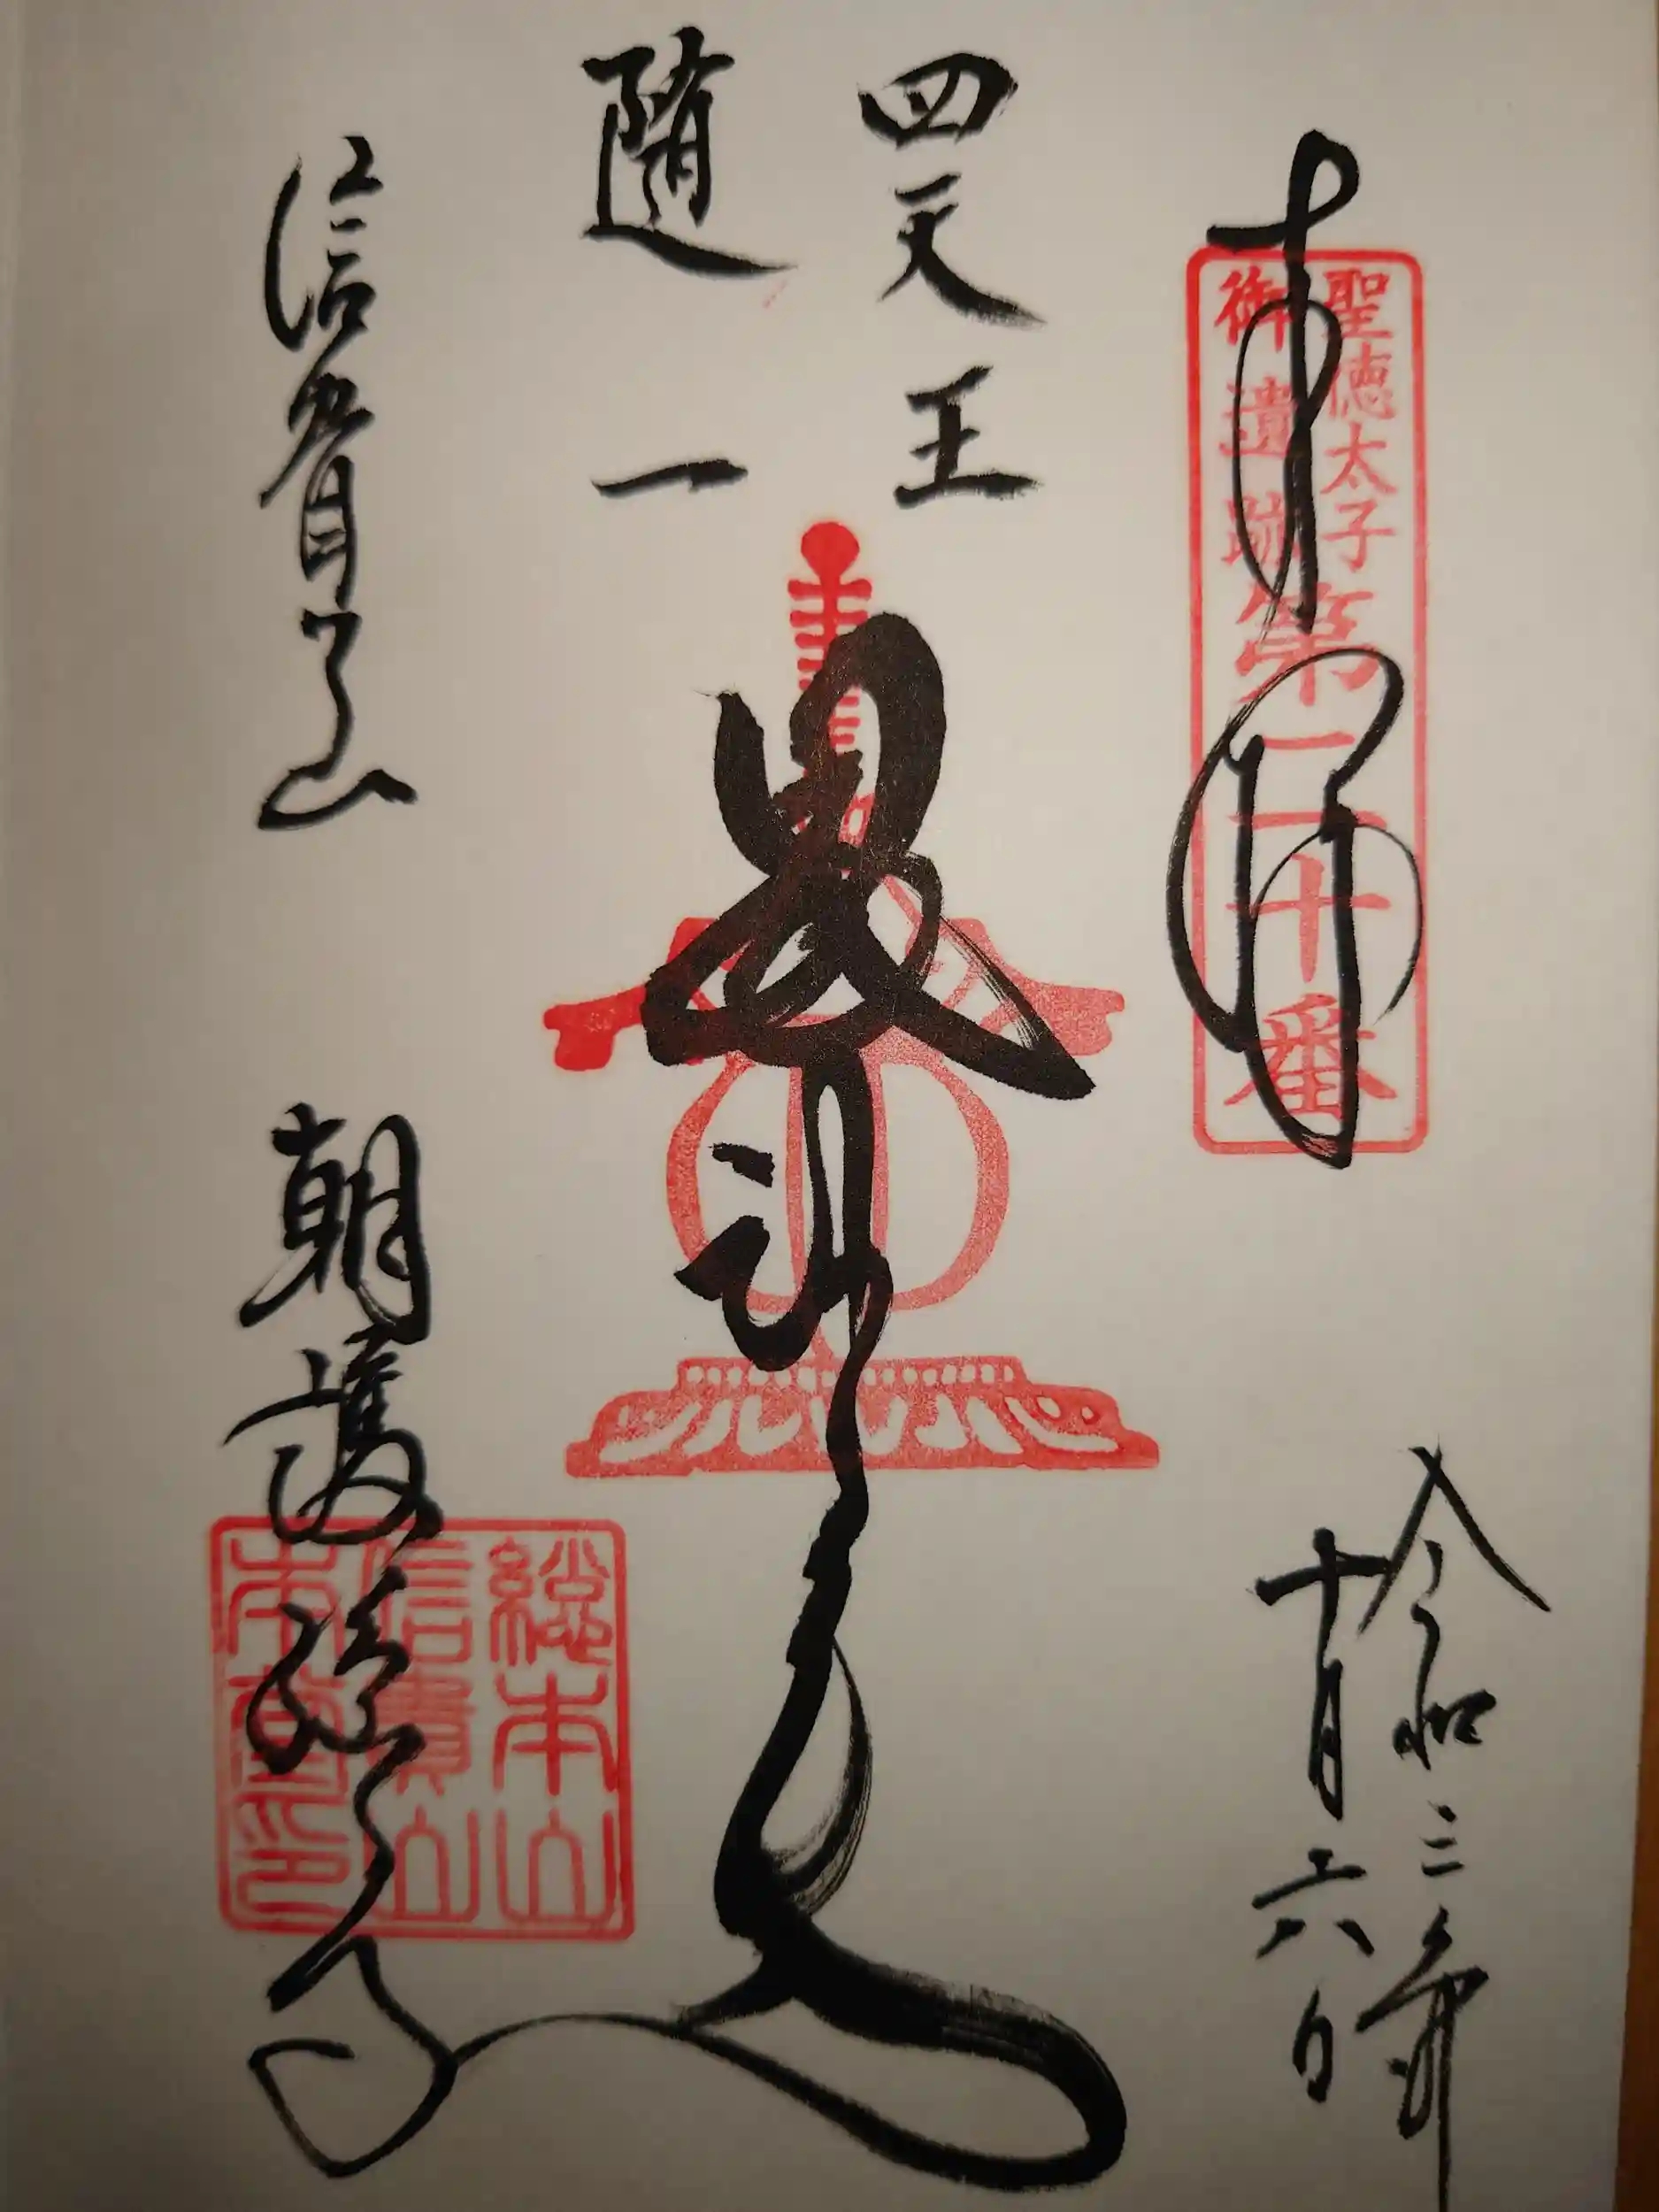 奉拝
聖徳太子
御遺跡
第二十番
令和三年
十月六日
四天王
随一
信貴山
朝護孫子
総本山
信貴山
本堂印